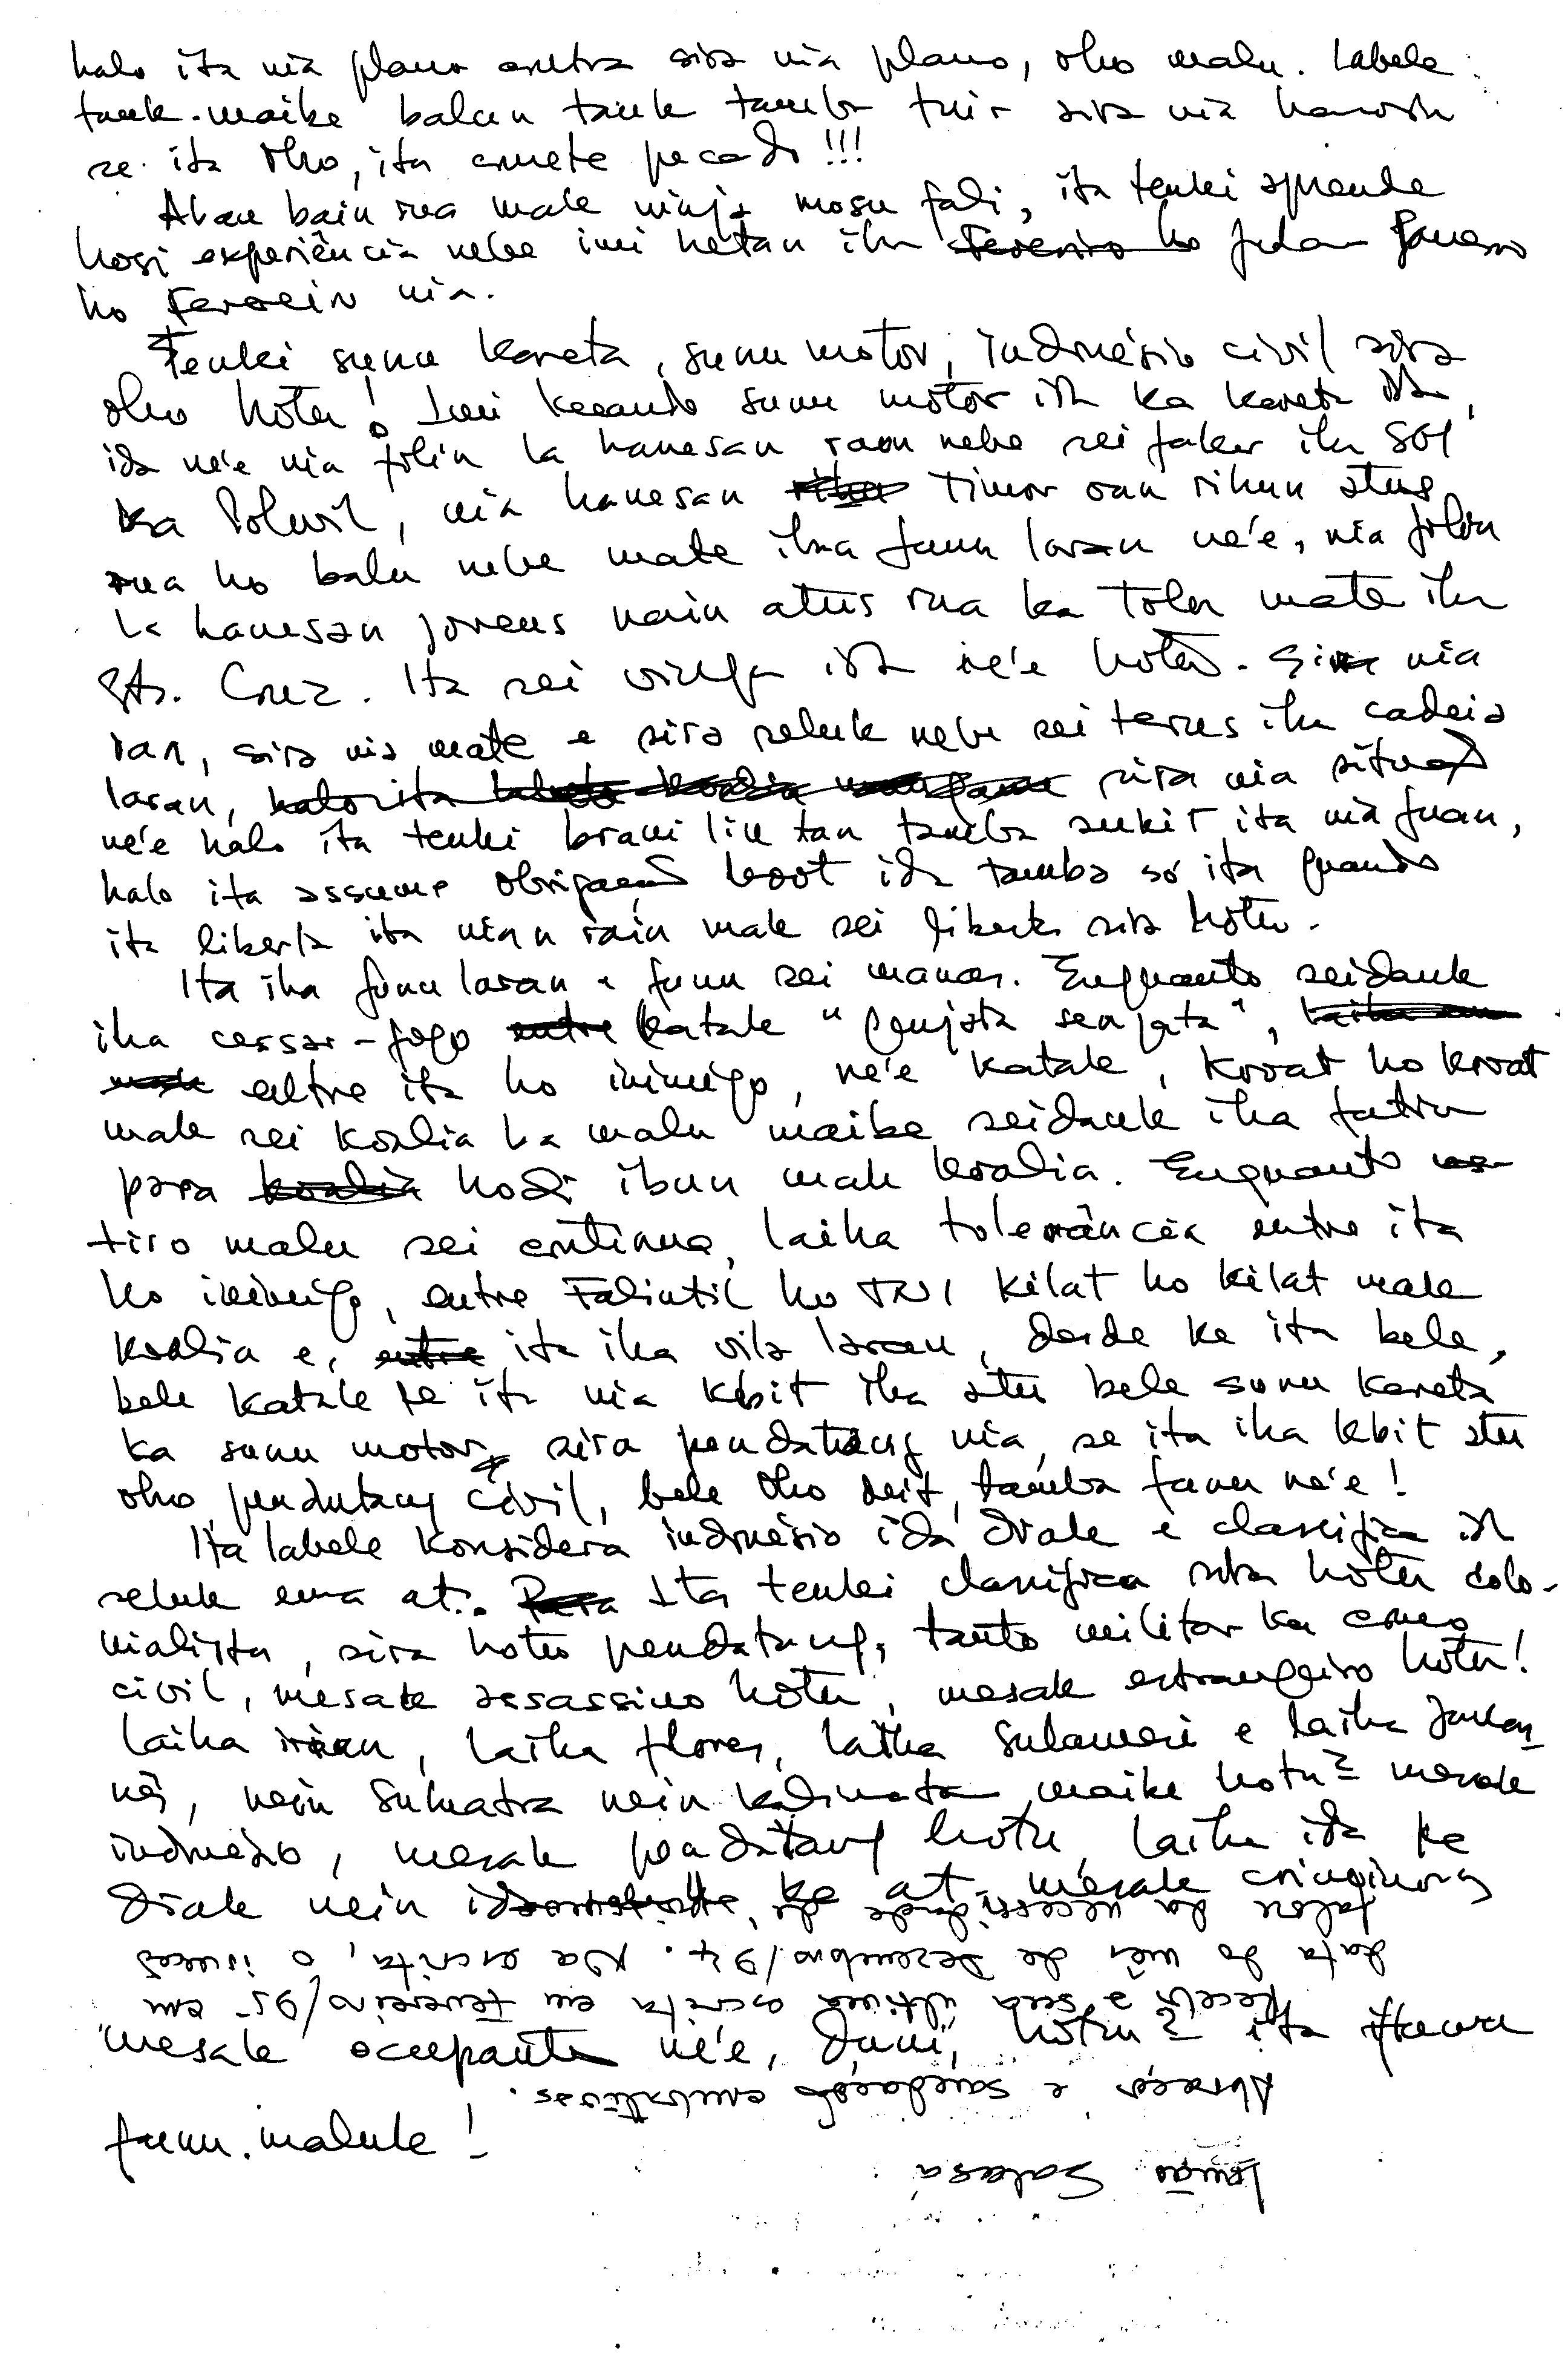 halo ita nia plano contra sira nia plano, oho malu. Labele
tauk. maike balun tauk tamba tuir sira nia hanoin
se ita oho, ita comete pecado!!!
Aban bain rua mak ninja mosu fali, ita tenki aprende
hosi experiência nebe imi hetan iha fulan Janeiro
ho Fevereiro nia.
Tenki sunu kareta, sunu motor, indonésio civil sira
oho hotu! Imi kuando sunu motor ida ka kareta ida,
ida ne'e nia folin la hanesan raan nebe sei faker iha SGI
ka Polwil, nia hanesan Timor oan rihun atus
rua ho balu nebe mate iha funu laran ne'e, nia folin
la hanesan jovens nain atus rua ka tolu mate iha
Sta. Cruz. Ita sei vinga ida ne'e hotu. Sira nia
ran, sira nia mate e sira seluk nebe sei terus iha cadeia
laran, sira nia situação
ne'e halo ita tenki brani liu tan tamba sukit ita nia fuan,
halo ita assume obrigação boot ida tamba só ita quando
ita liberta ita nian rain mak sei liberta sira hotu.
Ita iha funu laran e funu sei manas. Enquanto seidauk
iha cessar-fogo katak "genjata senjata",
entre ita ho inimigo, ne'e katak, kroat ho kroat
mak sei koalia ba malu maike seidauk iha fatin
para hodi ibun mak koalia. Enquanto
tiro malu sei continua, laiha tolerância entre ita
ho inimigo, entre Falintil ho TNI kilat ho kilat mak
koalia e, ita iha vila laran, desde ke ita bele,
bele katak se ita nia kbit iha atu bele sunu kareta
ka sunu motor, sira pendatang nia, se ita iha kbit atu
oho pendatang civil, bele oho deit, tamba funu ne'e!
Ita labele konsidera indonésio ida diak e classifica ida
seluk ema at. Ita tenki classifica sira hotu colo-
nialista, sira hotu pendatang, tanto militar ka como
civil, mesak assassino hotu, mesak estrangeiro hotu!
Laiha irian, laiha flores, laiha Sulawesi e laiha Javan-
nês, nein Sumatra nein kalimata maike hotu² mesak
indonésio, mesak pendatang hotu, laiha ida ke
diak nein ida ke at, mesak criminoso
mesak ocupante ne'e, duni, hotu² ita
funu. maluk!
Recebi a sua última escrita em Fevereiro/95 em
data do mês de Dezembro/94. Na escrita, o
falou da necessidade de
Abraços e saudações combativas.